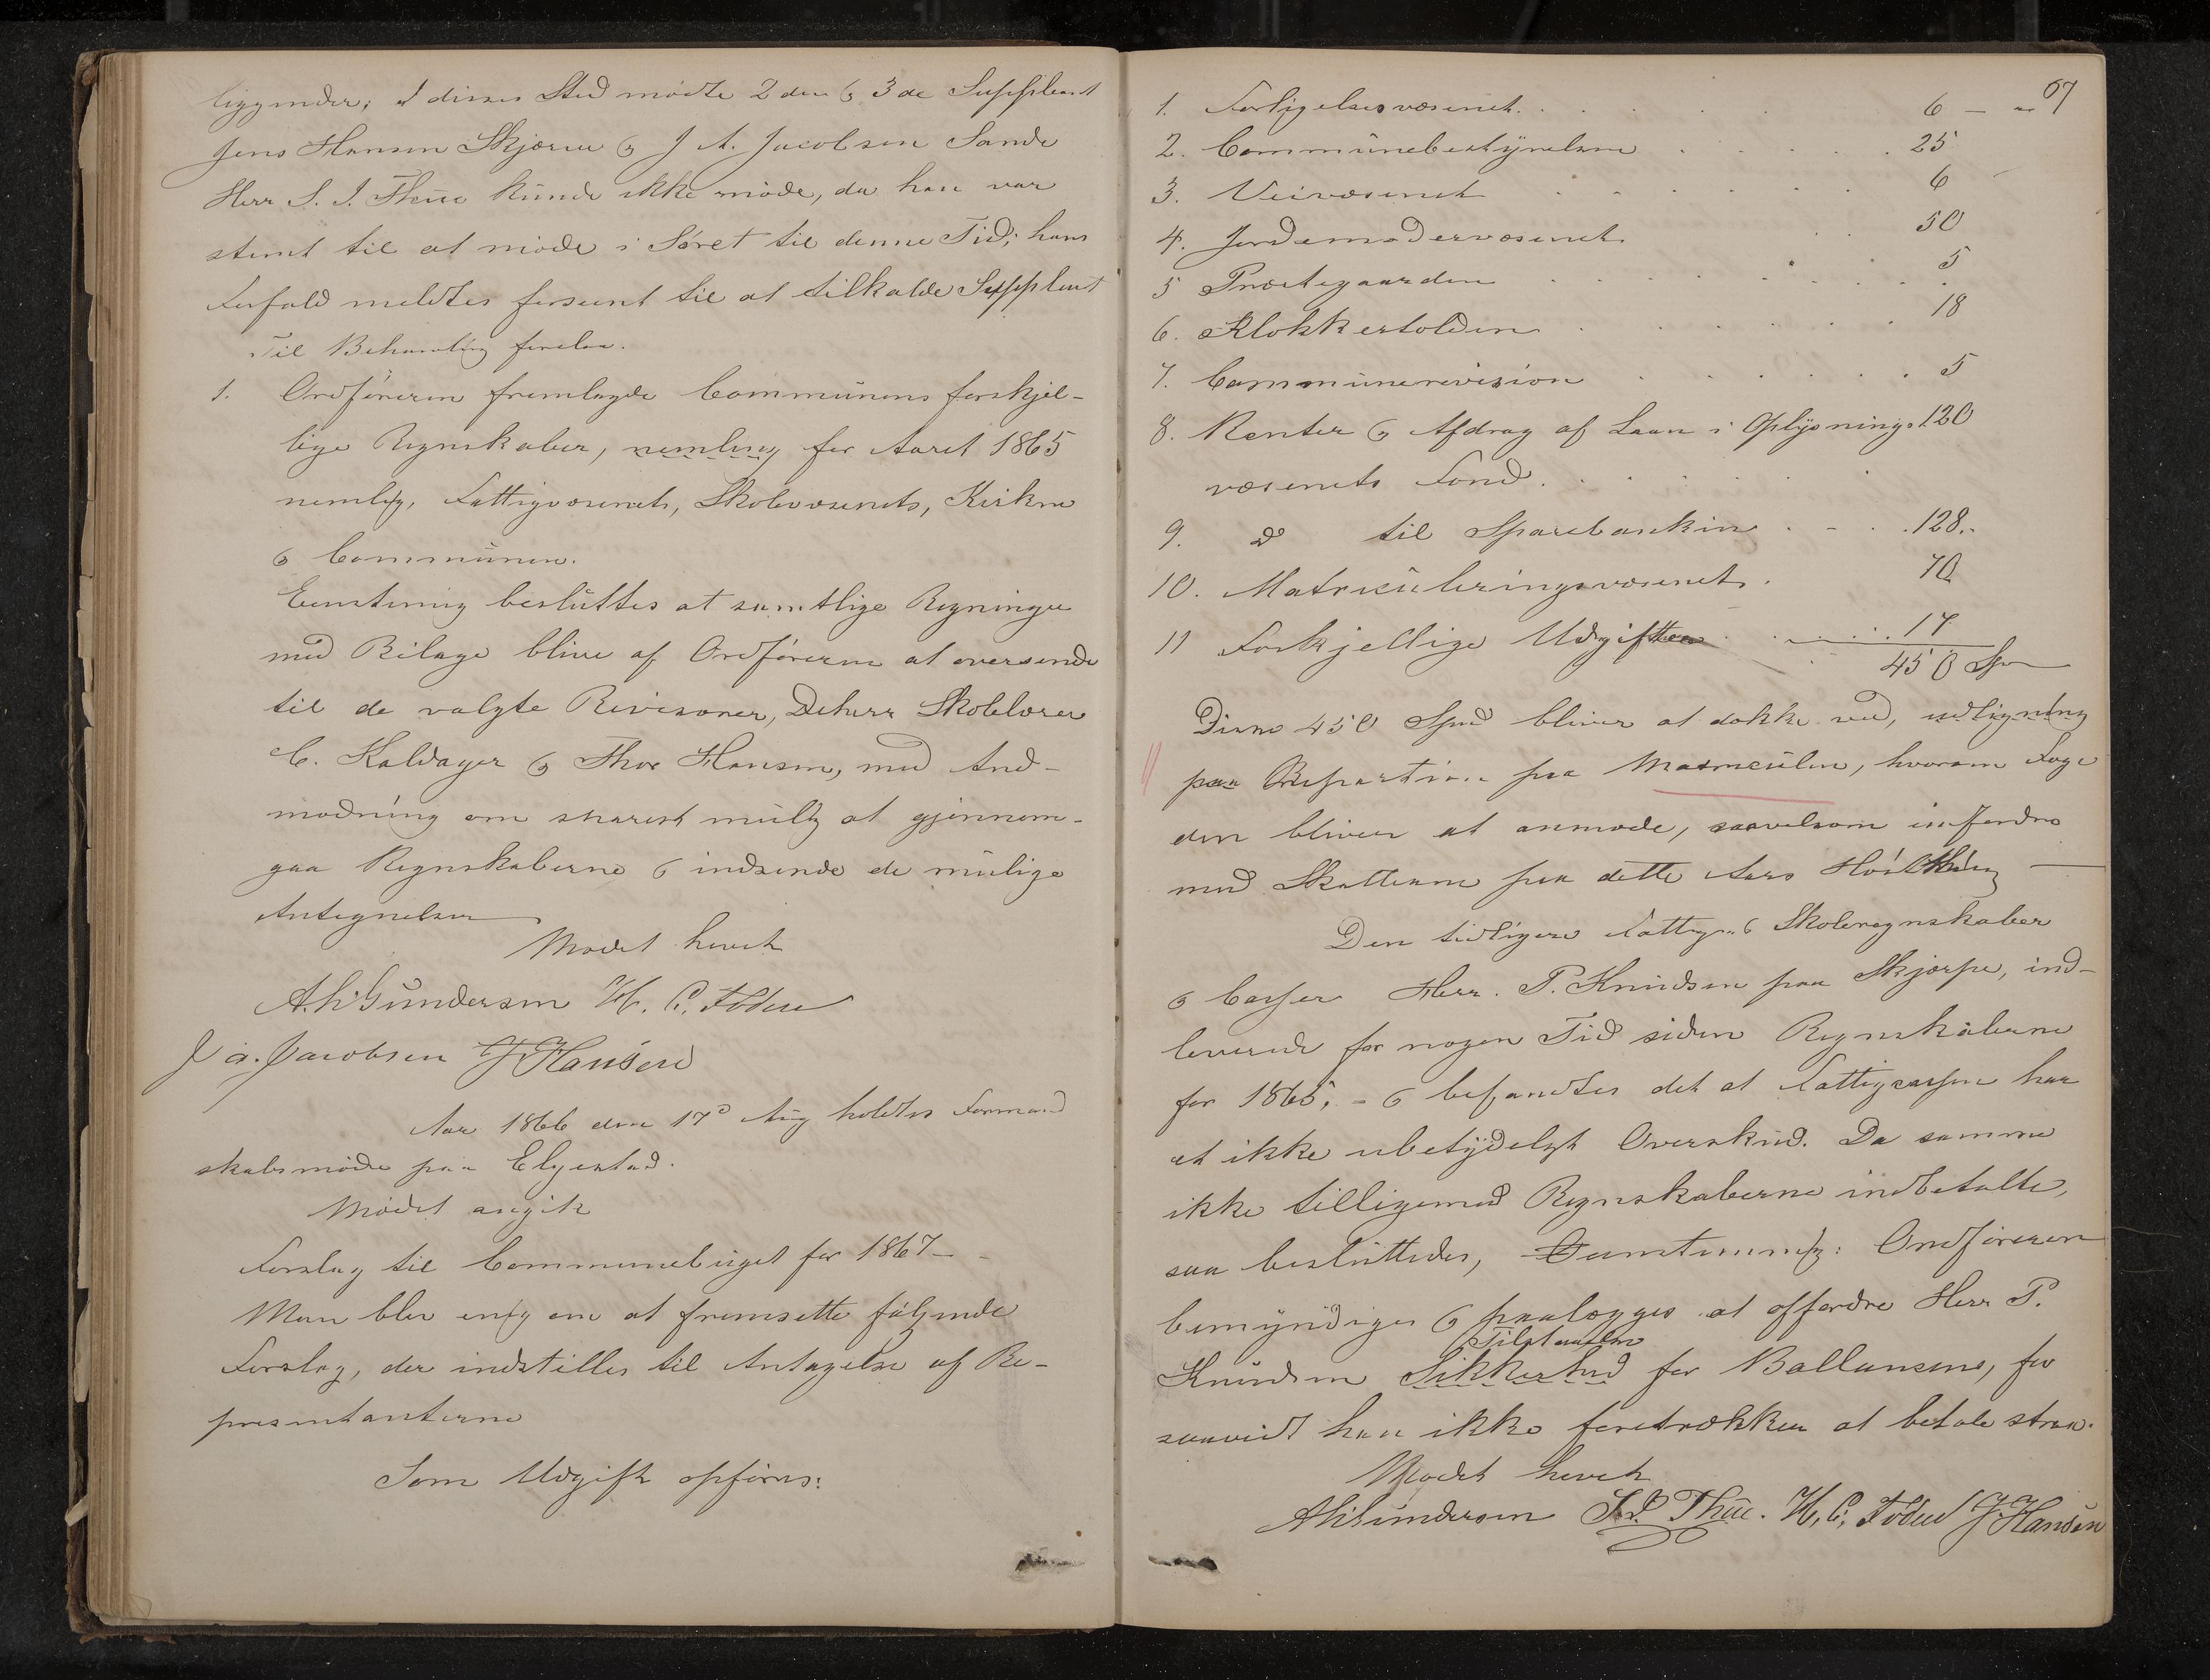 liggender; I disses Sted mødte 2den & 3de Suppleant
Jens Hansen Skjærven & J A. Jacobsen Sande
Herr S. I. Thue kunde ikke møde, da han var
stemt til at møde i Søret til denne Tid; hans
Forfald meldtes forseent til at tilkalde Suppleant
Til Behandling forelaa.
1. Ordføreren fremlagde Communens forskjel-
lige Regnskaber, nemling for Aaret 1865
nemlig, Fattigvæsenets, Skolevæsenets, Kirkens
& Communens.
Eenstemig besluttes at samtlige Regninger
med Bilage blive af Ordføreren at oversende
til de valgte Revisorer, Deherr Skolelærer
C. Kaldager & Thor Hansen, med And-
modning om snarest mulig at gjennem-
gaa Regnskaberne & indsende de mulige
Antegnelser
Mødet hevet
A. Gundersen H. C. Foden
J a. Jacobsen J Hansen
Aar 1866 den 17d Aug holdtes Formand
skabsmøde paa Elgestad.
Mødet angik
Forslag til Communebuget for 1867 –
Man blev enig om at fremsette følgende
Forslag, der indstilles til Antagelse af Re-
presentanterne
Som Udgift opføres:
67
1. Forligelsesvæsenet. 6 –
2. Communebestyrelsen 25
3. Veivæsenet 6
4. Jordemodervæsenet 50
5 Præstegaarden 5
6. Klokkertolden 18
7. Communerevision 5
8. Renter & Afdrag af Laan i Oplysnings 120
væsenets Fond.
9. do til Sparebanken 128.
10. Matriculeringsvæsenet. 70
11 Forskjellige Udgifter 17
450 Spd
Disse 450 Spd bliver at dække ved, udligning
paa Repartition paa Matriculen, hvorom Foge
den bliver at anmode, saavelsom indfordres
med Skatterne paa dette Aars Høstthing
Den tidligere Fattig- & Skoleregnskaber
& Casser Herr. P. Knudsen paa Skjærpe, ind-
leverede for nogen Tid siden Regnskaberne
for 1865, – & befandtes det at Fattigcassen har
et ikke ubetydeligt Overskud. Da samme
ikke tilligemed Regnskaberne indbetalte,
saa besluttedes, Eenstemmig: Ordføreren
bemyndiges & paalægges at opfordre Herr P.
Tilstaaelse
Knudsen Sikkerhed for Ballansene, for
saavidt han ikke foretrækker at betale strax.
Mødet hevet
A Gundersen S. I. Thue. H, C, Foden J. Hansen